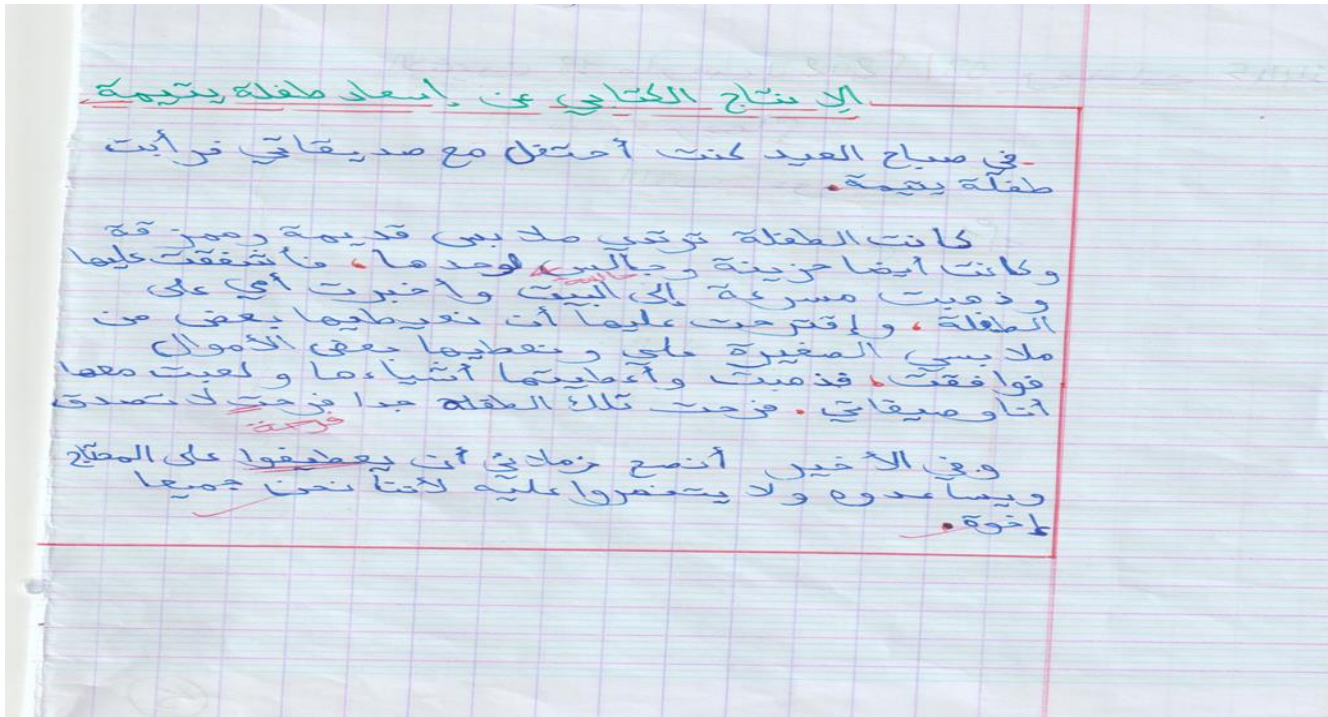 الإنتاج الكتابي عن إسعاد طفلة يتيمة
-في صباح العيد كنت أحتفل مع صديقاتي فرأيت
طفلة يتيمة.
كانت الطفلة ترتدي ملابس قديمة وممزقة
وكانت أيضا حزينة و جالس لوحدها، فأشفقت عليها
جالسة
وذهبت مسرعة إلى البيت وأخبرت أمي على
الطفلة، وإقترحت عليها أن نعيطيها بعض من
ملابسي الصغيرة علي ونعطيها بعض الأموال
فوافقت، فذهبت وأعطيتها أشياءها ولعبت معها
أنا وصيقاتي. فرحت تلك الطفلة جدا فرحت لا تصدق
فرحة
وفي الأخير أنصح زملائي أن يعطيفوا على المحتاج
ويساعدوه ولا يتنمروا عليه لأننا نحن جميعا
إخوة.